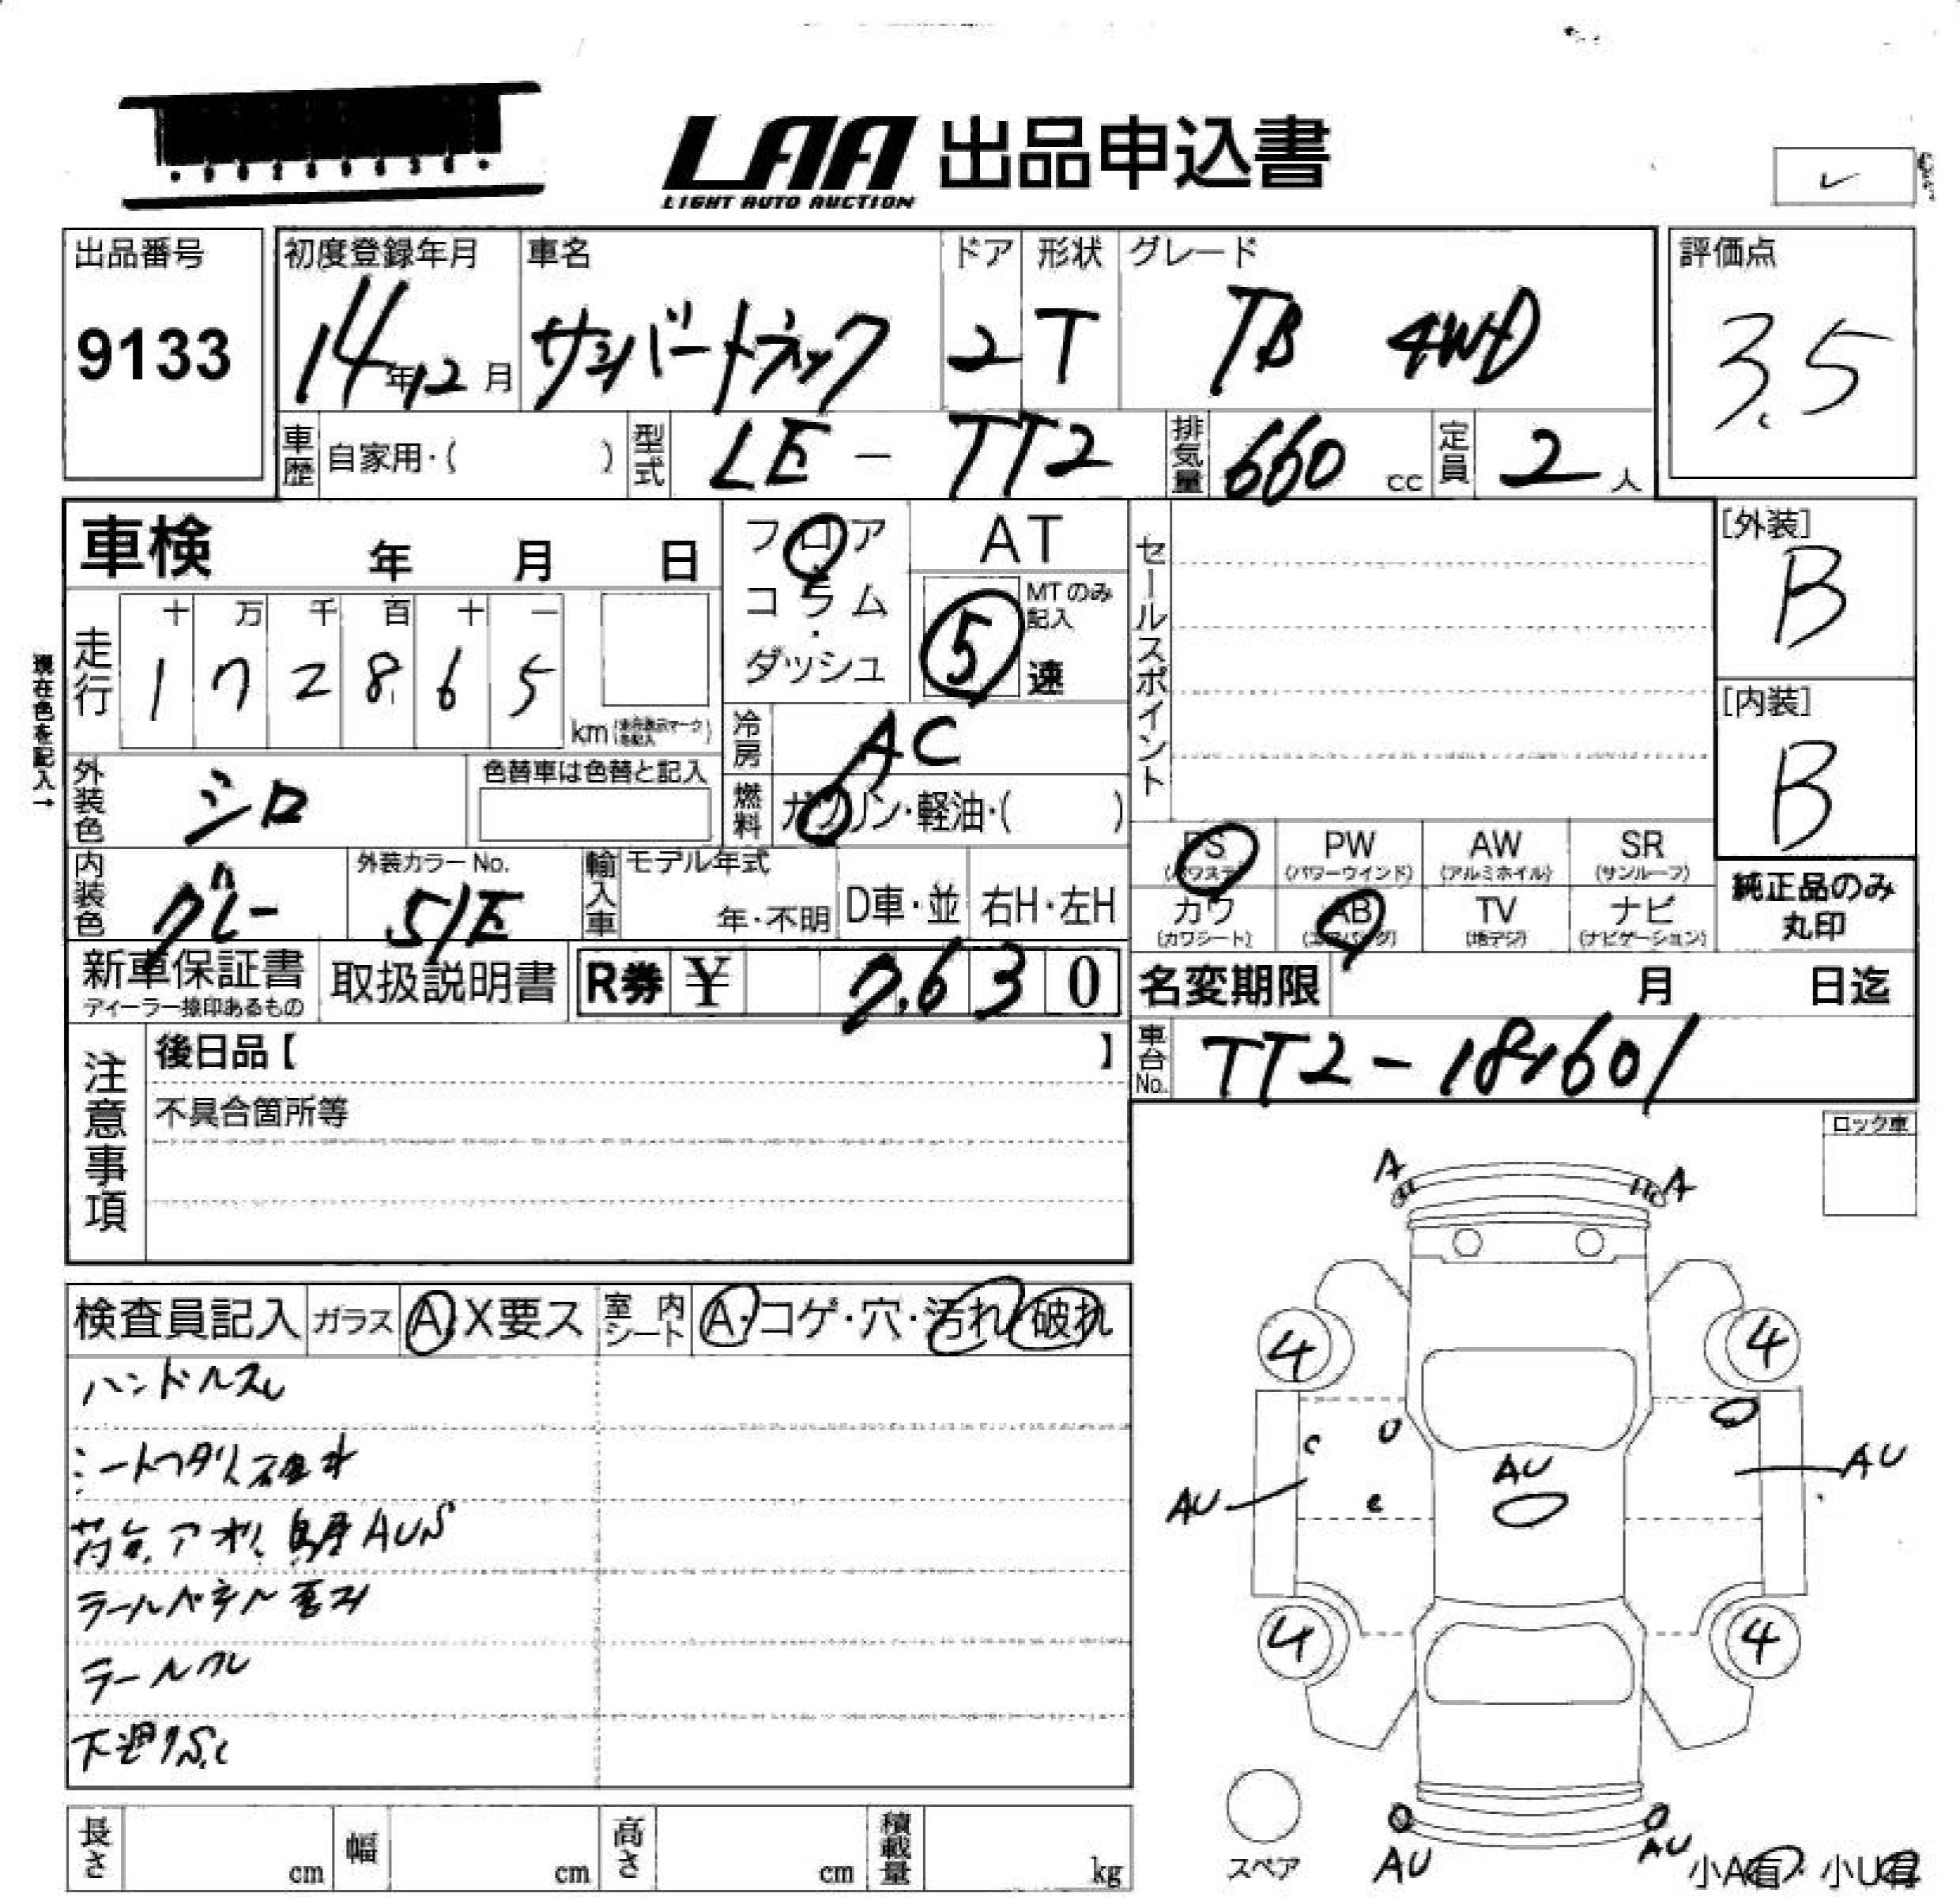 LAA 出品申込書
LIGHT AUTO AUCTION
出品番号
9133
初度登録年月
14年12月
車名
サンバートラック
ドア
2
形状
T
グレード
TB 4WD
評価点
3.5
車歴
自家用・( )
型式
LE-TT2
排気量
660 cc
定員
2人
車検 年 月 日
フロア
コラム
・
ダッシュ
AT
MTのみ
記入
5
速
セールスポイント
[外装]
B
[内装]
B
現在色を記入→
走行
十 万 千 百 十 一
1 7 2 8 6 5
km
冷房
AC
外装色
シロ
色替車は色替と記入
燃料
ガソリン・軽油・( )
内装色
グレー
外装カラーNo.
51E
輸入車
モデル年式
年・不明
D車・並
右H・左H
PS PW AW SR
(パワステ) (パワーウインド) (アルミホイル) (サンルーフ)
カワ AB TV ナビ
(カワシート) (エアバッグ) (地デジ) (ナビゲーション)
純正品のみ
丸印
新車保証書
ディーラー捺印あるもの
取扱説明書
R券 ¥ 7,630
名変期限 月 日迄
注意事項
後日品【 】
車台No.
TT2-181601
不具合箇所等
ロック車
A A
検査員記入
ガラス
A X要ス
室内シート
A・コゲ・穴・汚れ・破れ
ハンドルスレ
シートフタリ破れ
荷台
アオリ
鳥居AUS
下廻りS
4 4
U
C
AU
AU
AU
4 4
スペア
AU AU
小A有・小U有
長さ cm
幅 cm
高さ cm
積載量 kg